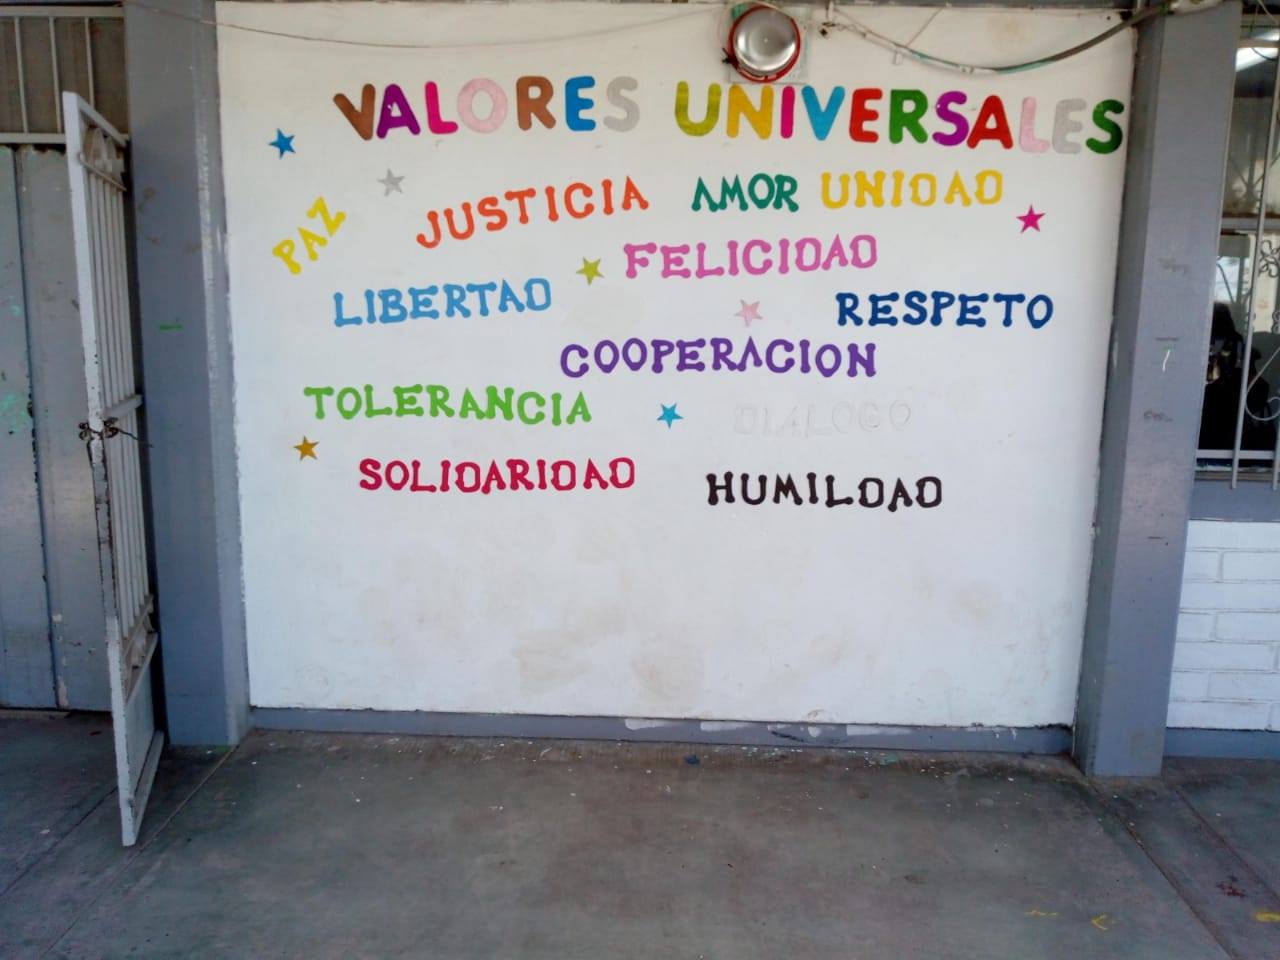 VALORES UNIVERSALES
PAZ
JUSTICIA
AMOR
UNIDAD
FELICIDAD
LIBERTAD
RESPETO
COOPERACION
TOLERANCIA
DIALOGO
SOLIDARIDAD
HUMILDAD